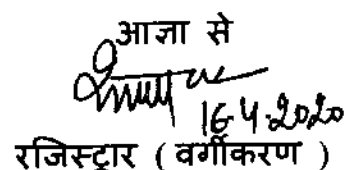 आज्ञा से
16.4.2020
रजिस्ट्रार ( वर्गीकरण )